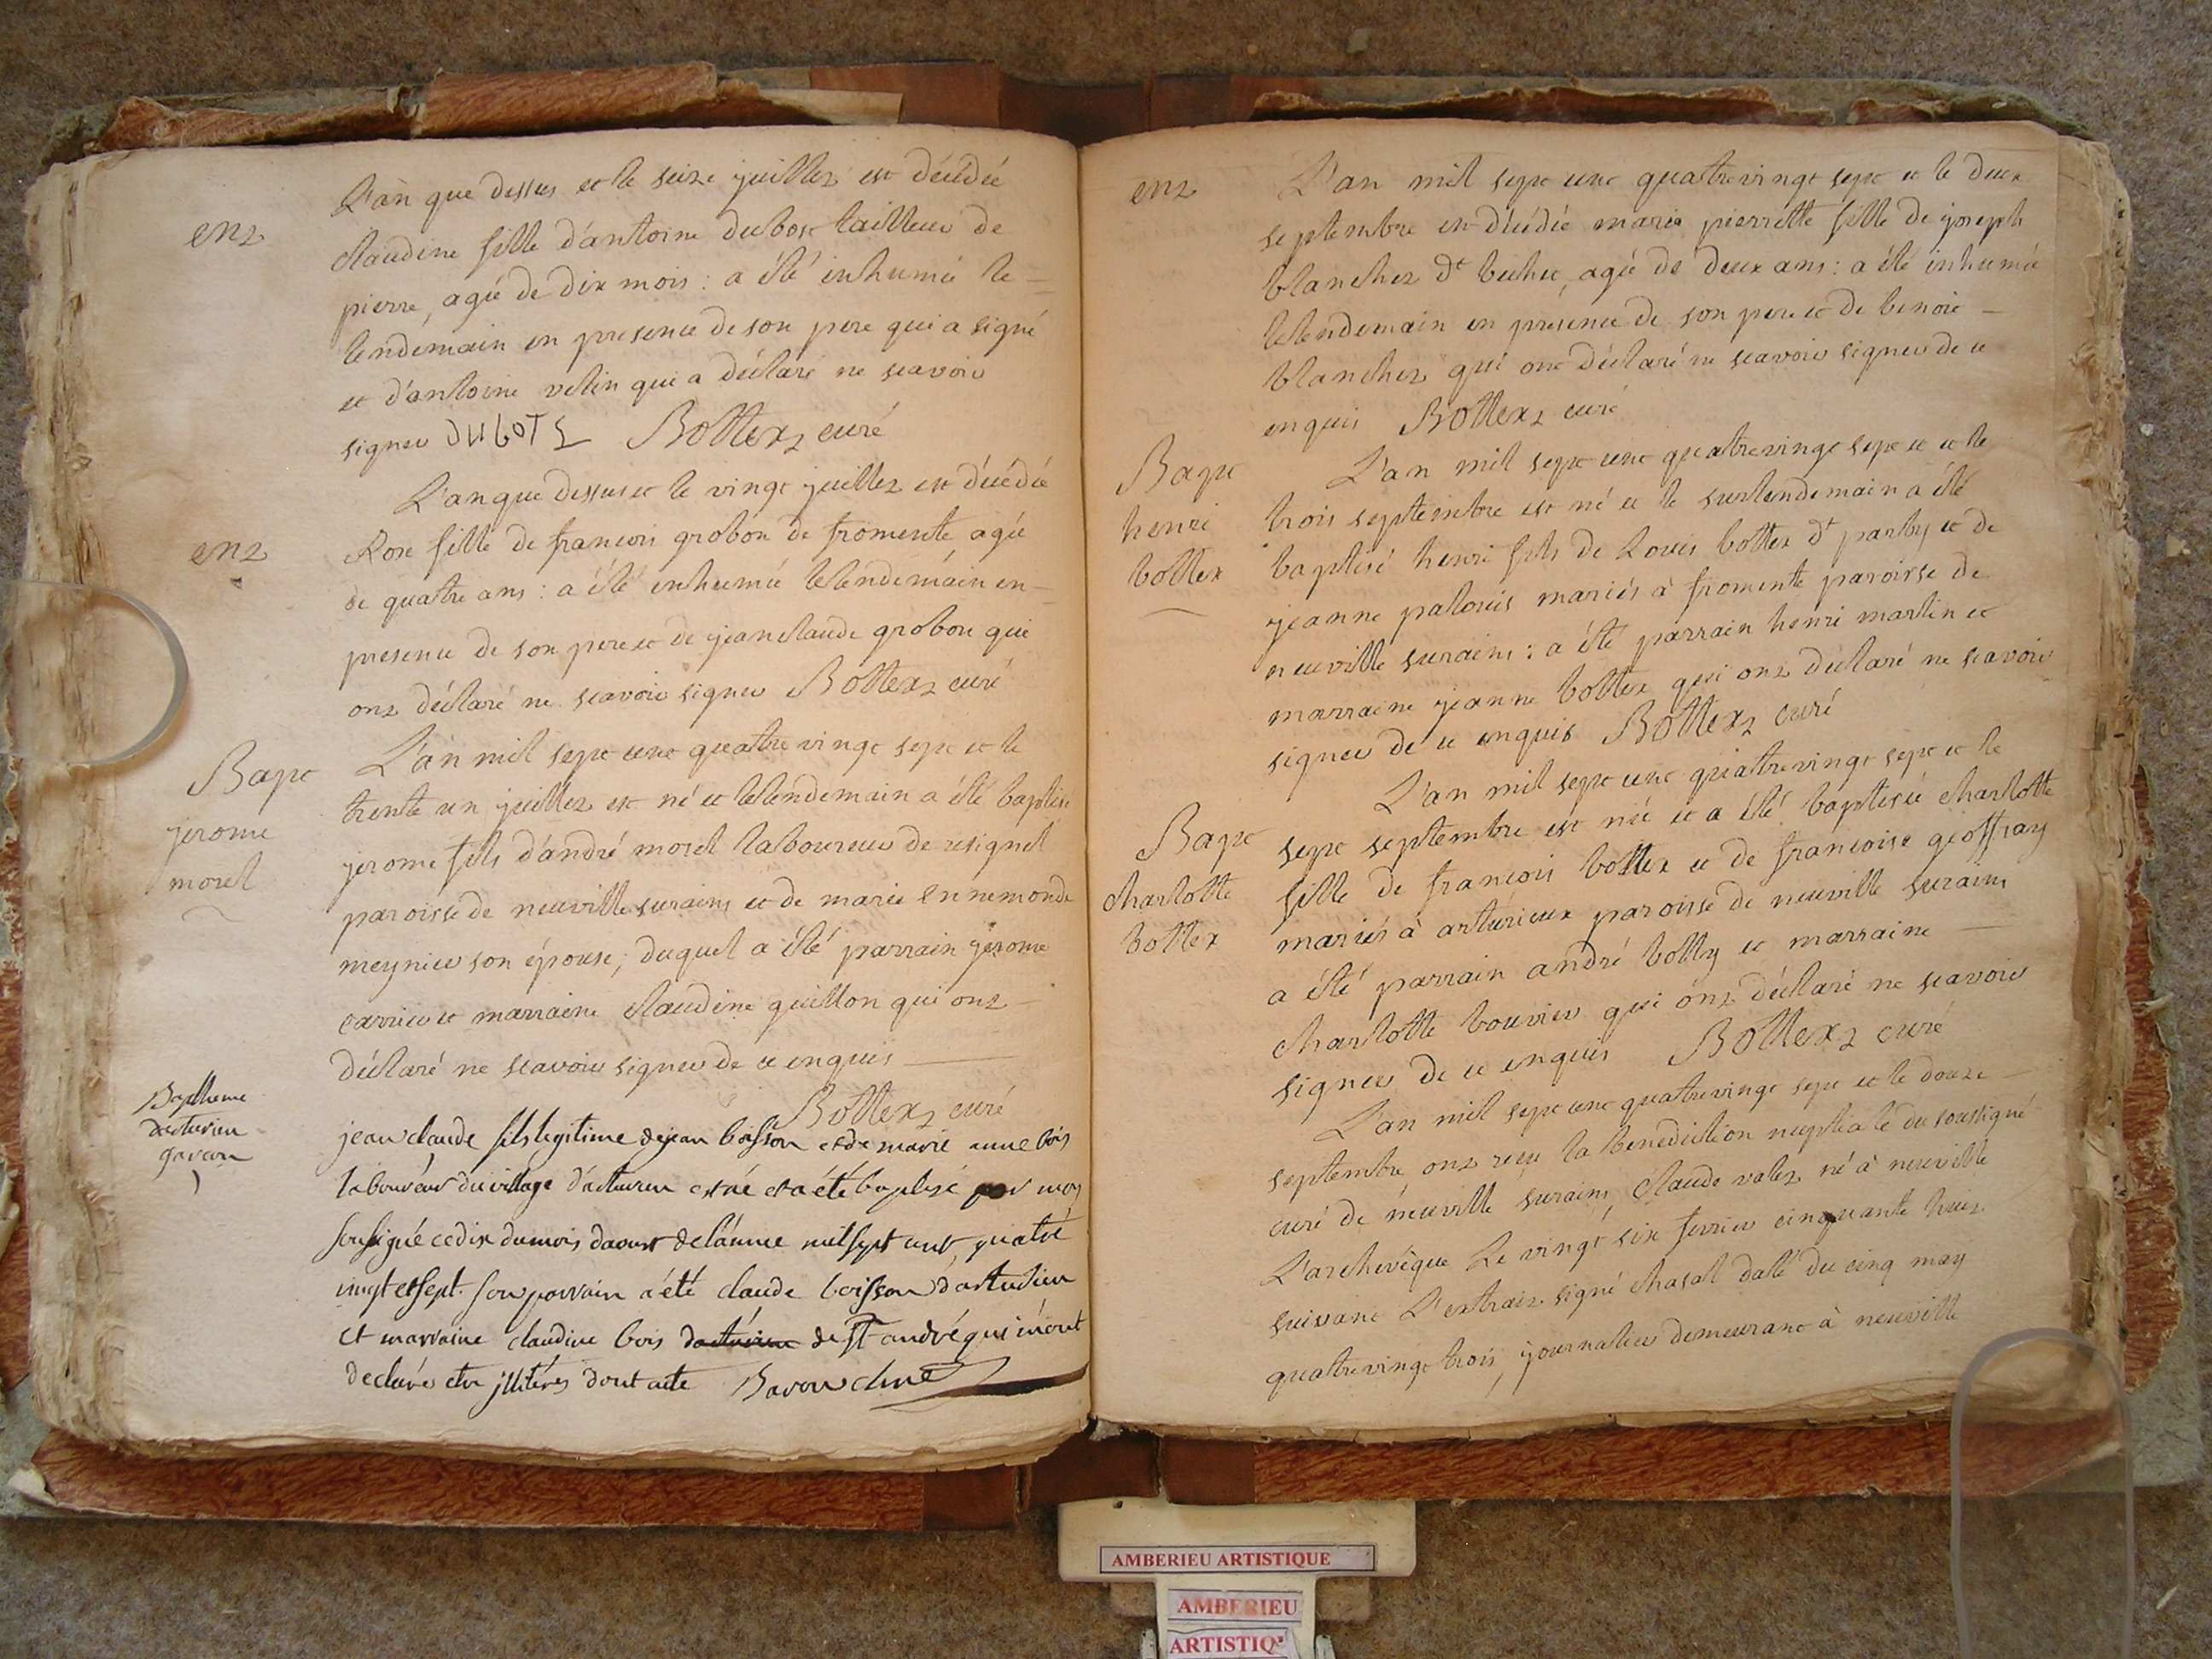 enz
L'an que dessus et le seize juillez est décédée
claudine fille d'antoine dubost tailleur de
pierre, agée de dix mois : a été inhumée le
lendemain en presence de son pere qui a signé
et d'antoine velin qui a déclaré ne scavoir
signer DUBOTS Bottexz curé
enz
L'an que dessus et le vingt juillez est décédée
Rose fille de francois grobon de fromente, agée
de quatre ans : a été inhumée le lendemain en
presence de son pere et de jean claude grobon qui
onz déclaré ne scavoir signer Bottexz curé
Bapt
jerome
morel
L'an mil sept cent quatre vingt sept et le
trente un juillez est né et le lendemain a été baptisé
jerome fils d'andré morel laboureur de resignel
paroisse de neuville surains et de marie ennemonde
meynier son épouse; duquel a été parrain jerome
carrier et marraine claudine guillon qui onz
déclaré ne scavoir signer de ce enquis
Bottexz curé
Baptheme
jean claude fils legitime de jean boisson et de marie anne bois
laboureur du village d'arturieu est né et a été baptisé par moy
sousigné ce dix du mois daoust de lannee mil sept cent quatre
vingt et sept. son parrain a été claude boisson d'arturieu
et marraine claudine bois de St andré qui m'ont
declarés etre jlliterés dont acte
enz
L'an mil sept cent quatrevingt sept et le deux
septembre est décédée marie pierrette fille de joseph
blanchez dt, agée de deux ans : a été inhumée
le lendemain en présence de son pere et de benoit
blanchez qui ont déclaré ne scavoir signer de ce
enquis Bottexz curé
Bapt
henri
bottex
L'an mil sept cent quatrevingt sept et et le
trois septembre est né et le surlendemain a été
baptisé henri fils de Louis bottex dt parby et de
jeanne palouis mariés à fromente paroisse de
neuville surains : a été parrain henri martin et
marraine jeanne bottex qui onz déclaré ne scavoir
signer de ce enquis Bottexz curé
Bapt
charlotte
bottex
L'an mil sept cent quatrevingt sept et le
sept septembre est née et a été baptisée charlotte
fille de francois bottex et de francoise geoffray
mariés à arturieux paroisse de neuville surains
a été parrain andré botty et marraine
charlotte bouvier qui onz déclaré ne scavoir
signer de ce enquis Bottexz curé
L'an mil sept cent quatrevingt sept et le douze
septembre, onz reçu la benediction nuptiale du soussigné
curé de neuville surains, claude valez né à neuville
L'archevêque Le vingt six fevrier cinquante huit
suivant L'extrait signé chasal datté du cinq may
quatrevingt trois, journalier demeurant à neuville
AMBERIEU ARTISTIQUE
AMBERIEU
ARTISTIQ